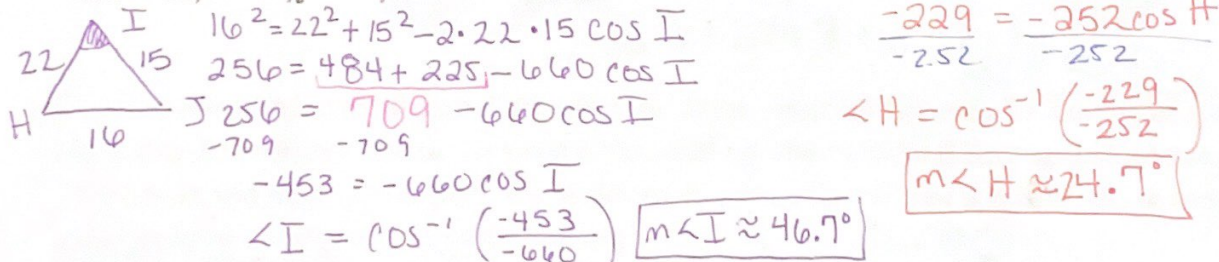 I
22
15
H
J
16
16² = 22² + 15² - 2 · 22 · 15 cos I
256 = 484 + 225 - 660 cos I
256 = 709 - 660 cos I
-709 -709
-453 = -660 cos I
<I = cos⁻¹ (-453/-660) m<I ≈ 46.7°
-229 = -252 cos H
-252 -252
<H = cos⁻¹ (-229/-252)
m<H ≈ 24.7°